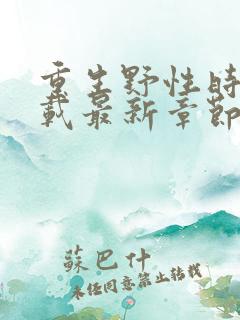 重生野性時
載最新章節
蘇巴什
未经同意禁止转载